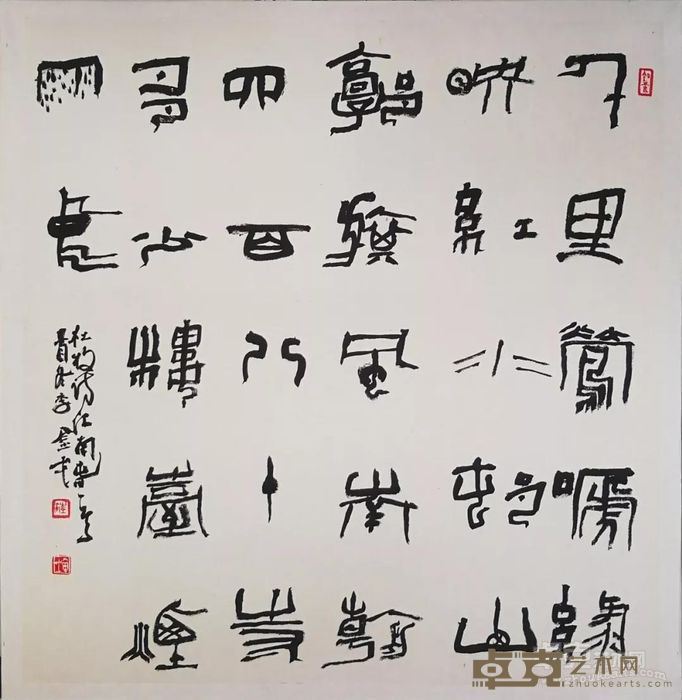 千里鶯啼綠
映紅水邨山
郭旗風南朝
四百八十寺
多少樓臺煙
雨中
杜牧詩江南春一首
李金
卓克艺术网
zhuokearts.com